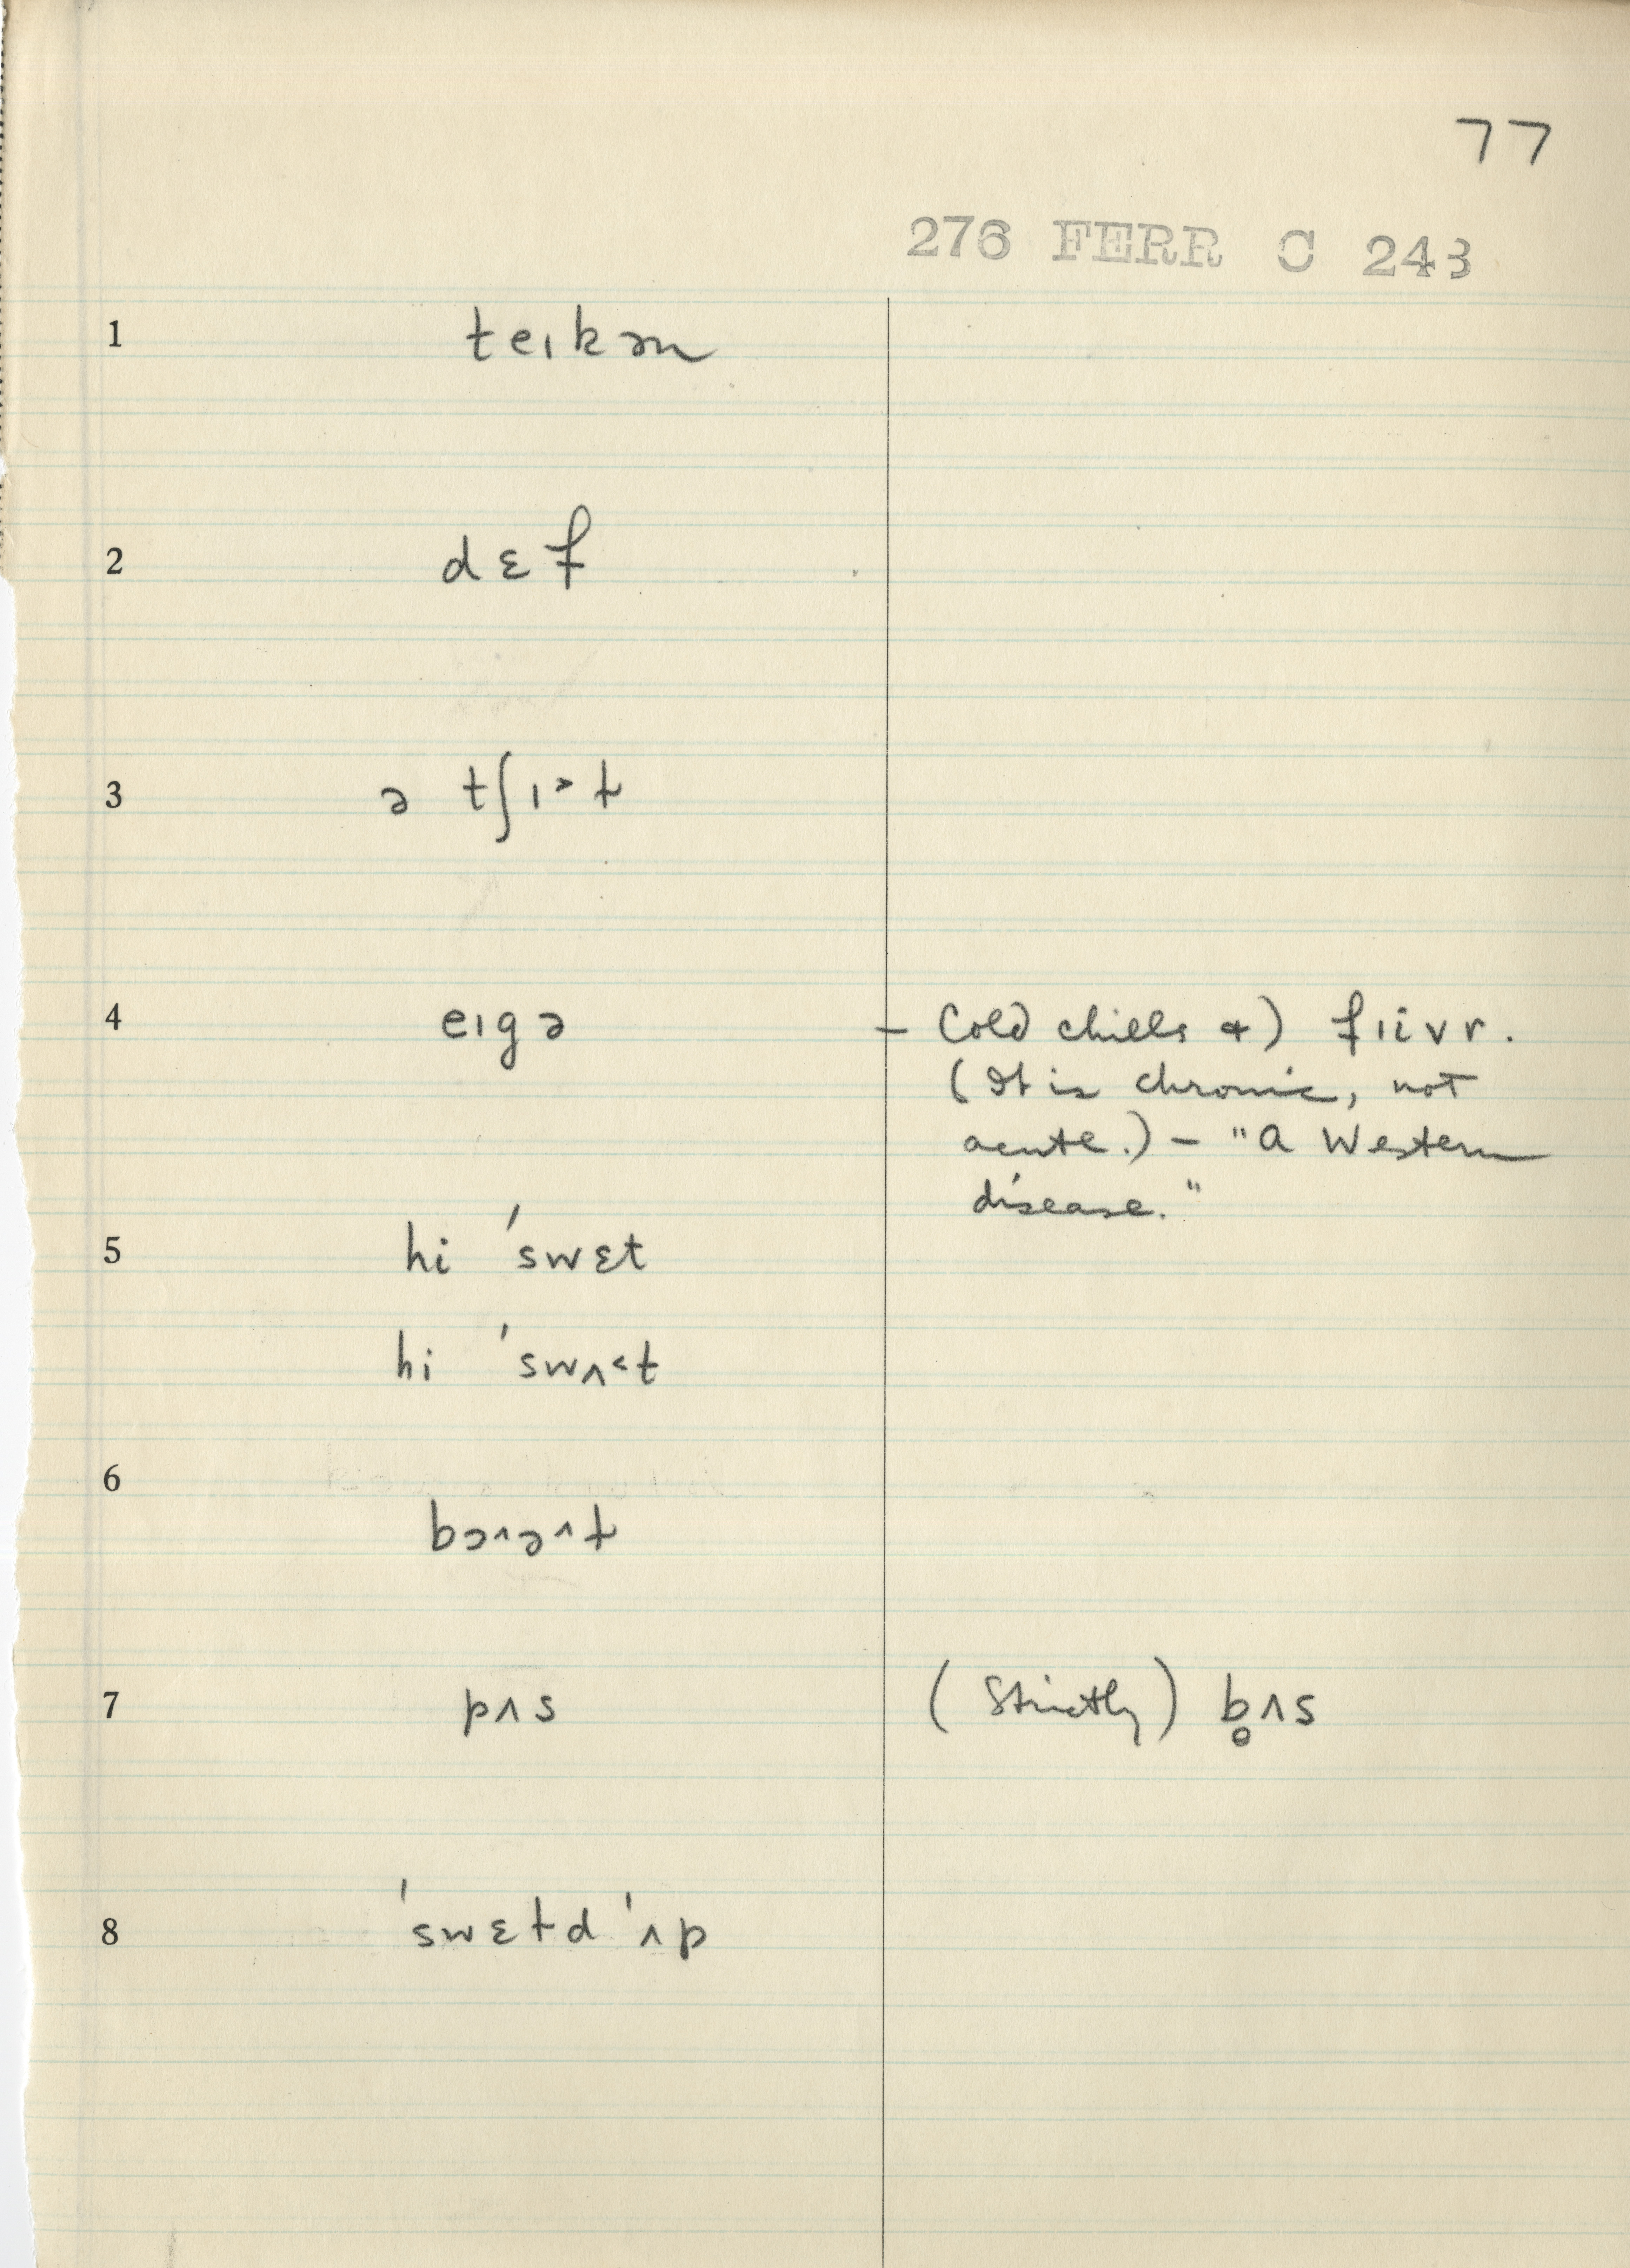 77
276 FERR C 243
1 teɪkən
2 dɛf
3 ə tʃɪ˃t
4 eɪgə – Cold chills &) fɪivr.
(It is chronic, not
acute.) – "A Western
disease."
5 hi 'swɛt
hi 'swʌ˂t
6 bɔ^ə^t
7 pʌs (Strictly) b̥ʌs
8 'swɛtd 'ʌp